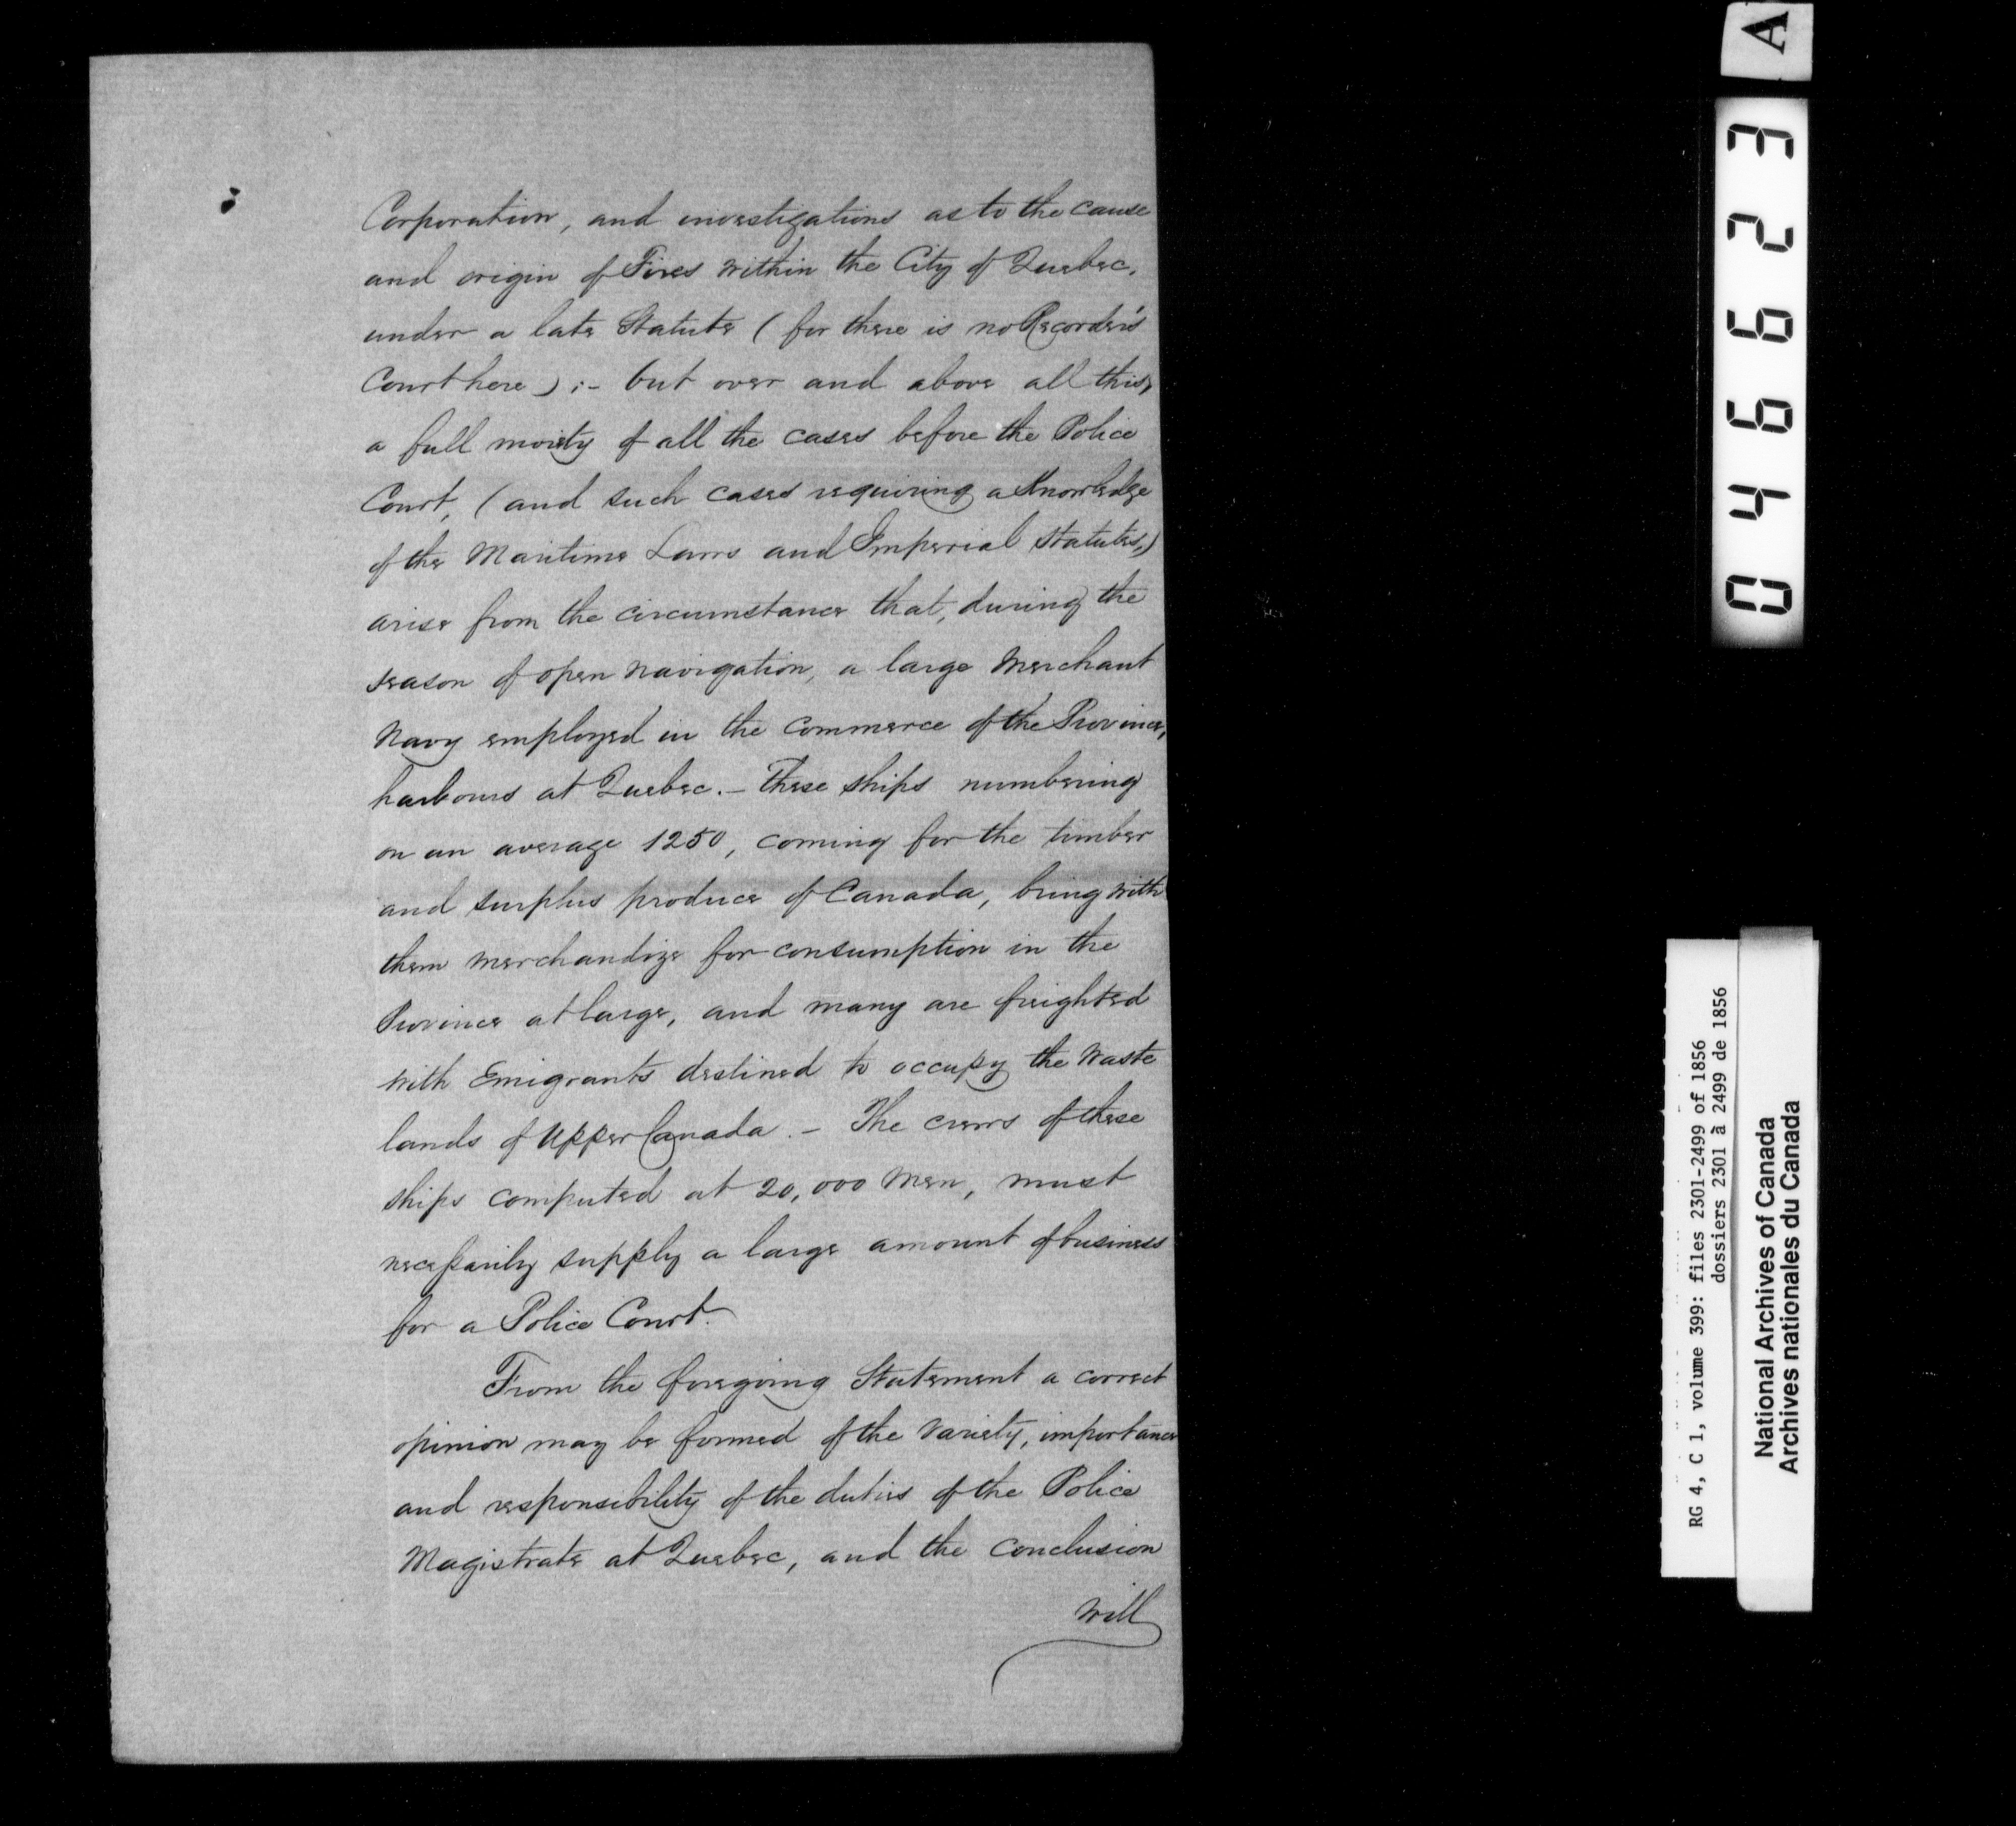 Corporation, and investigations as to the cause
and origin of Fires within the City of Quebec,
under a late Statute (for there is no Recorder's
Court here) :- but over and above all this,
a full moiety of all the cases before the Police
Court, (and such cases requiring a Knowledge
of the Maritime Laws and Imperial Statutes,)
arise from the circumstance that, during the
season of open navigation, a large Merchant
Navy employed in the Commerce of the Province,
harbours at Quebec. - These ships numbering
on an average 1250, coming for the timber
and surplus produce of Canada, bring with
them merchandize for consumption in the
Province at large, and many are freighted
with Emigrants destined to occupy the Waste
lands of Upper Canada. - The crews of these
ships computed at 20,000 Men, must
necessarily supply a large amount of business
for a Police Court.
From the foregoing Statement a correct
opinion may be formed of the variety, importance
and responsibility of the duties of the Police
Magistrate at Quebec, and the conclusion
will
046623 A
RG 4, C 1, volume 399: files 2301-2499 of 1856
dossiers 2301 à 2499 de 1856
National Archives of Canada
Archives nationales du Canada